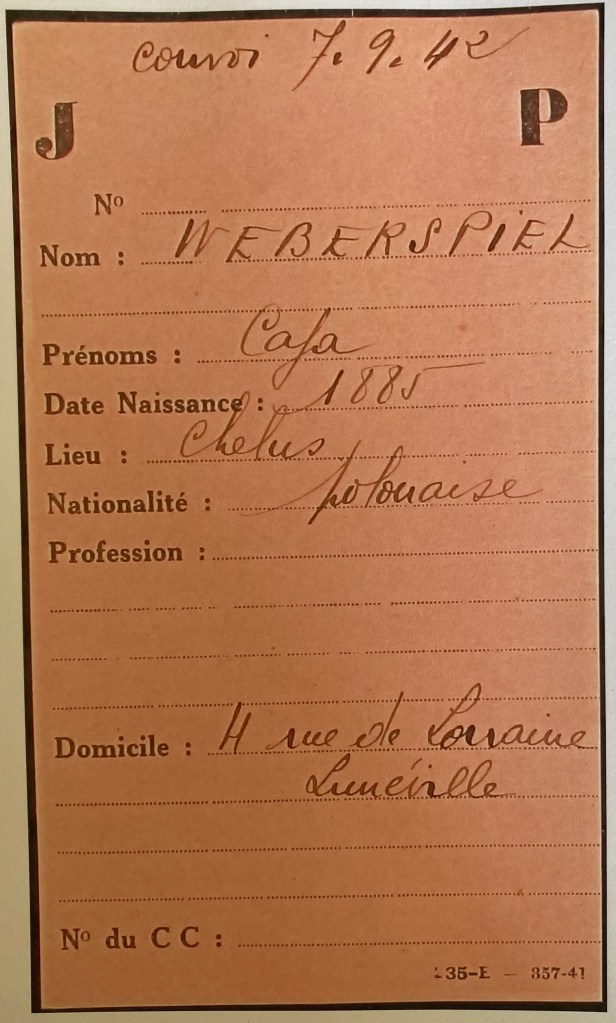 convoi 7.9.42
J P
No
Nom : WEBERSPIEL
Prénoms : Cafa
Date Naissance : 1885
Lieu : Chelus
Nationalité : polonaise
Profession :
Domicile : 4 rue de Lorraine
Lunéville
No du C C :
35-E — 357-41